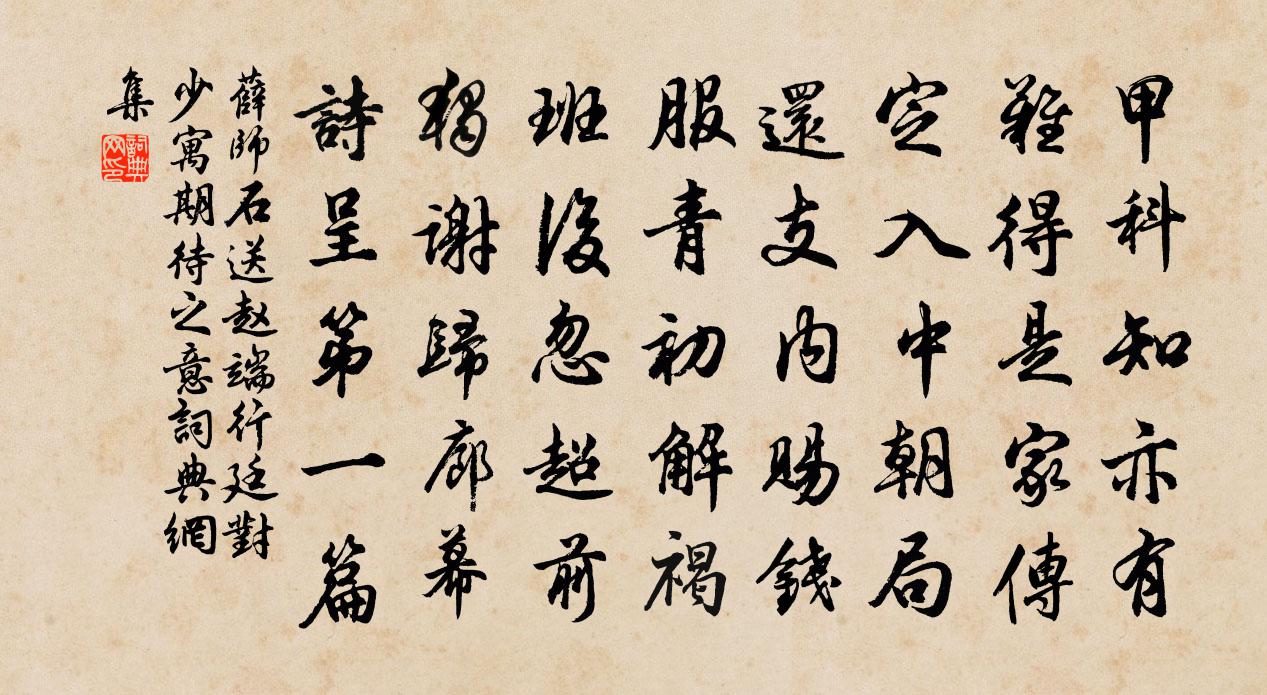 甲科知亦有
難得是家傳
定入中朝局
還支内賜錢
服青初解褐
班後忽超前
獨謝歸廊幕
詩呈第一篇
薛師石送趙端行廷對
少寓期待之意詞典網
集
詞典
网印